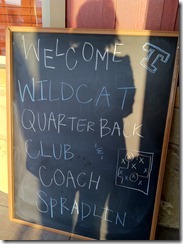 WELCOME T
WILDCAT
QUARTERBACK
CLUB &
COACH
SPRADLIN